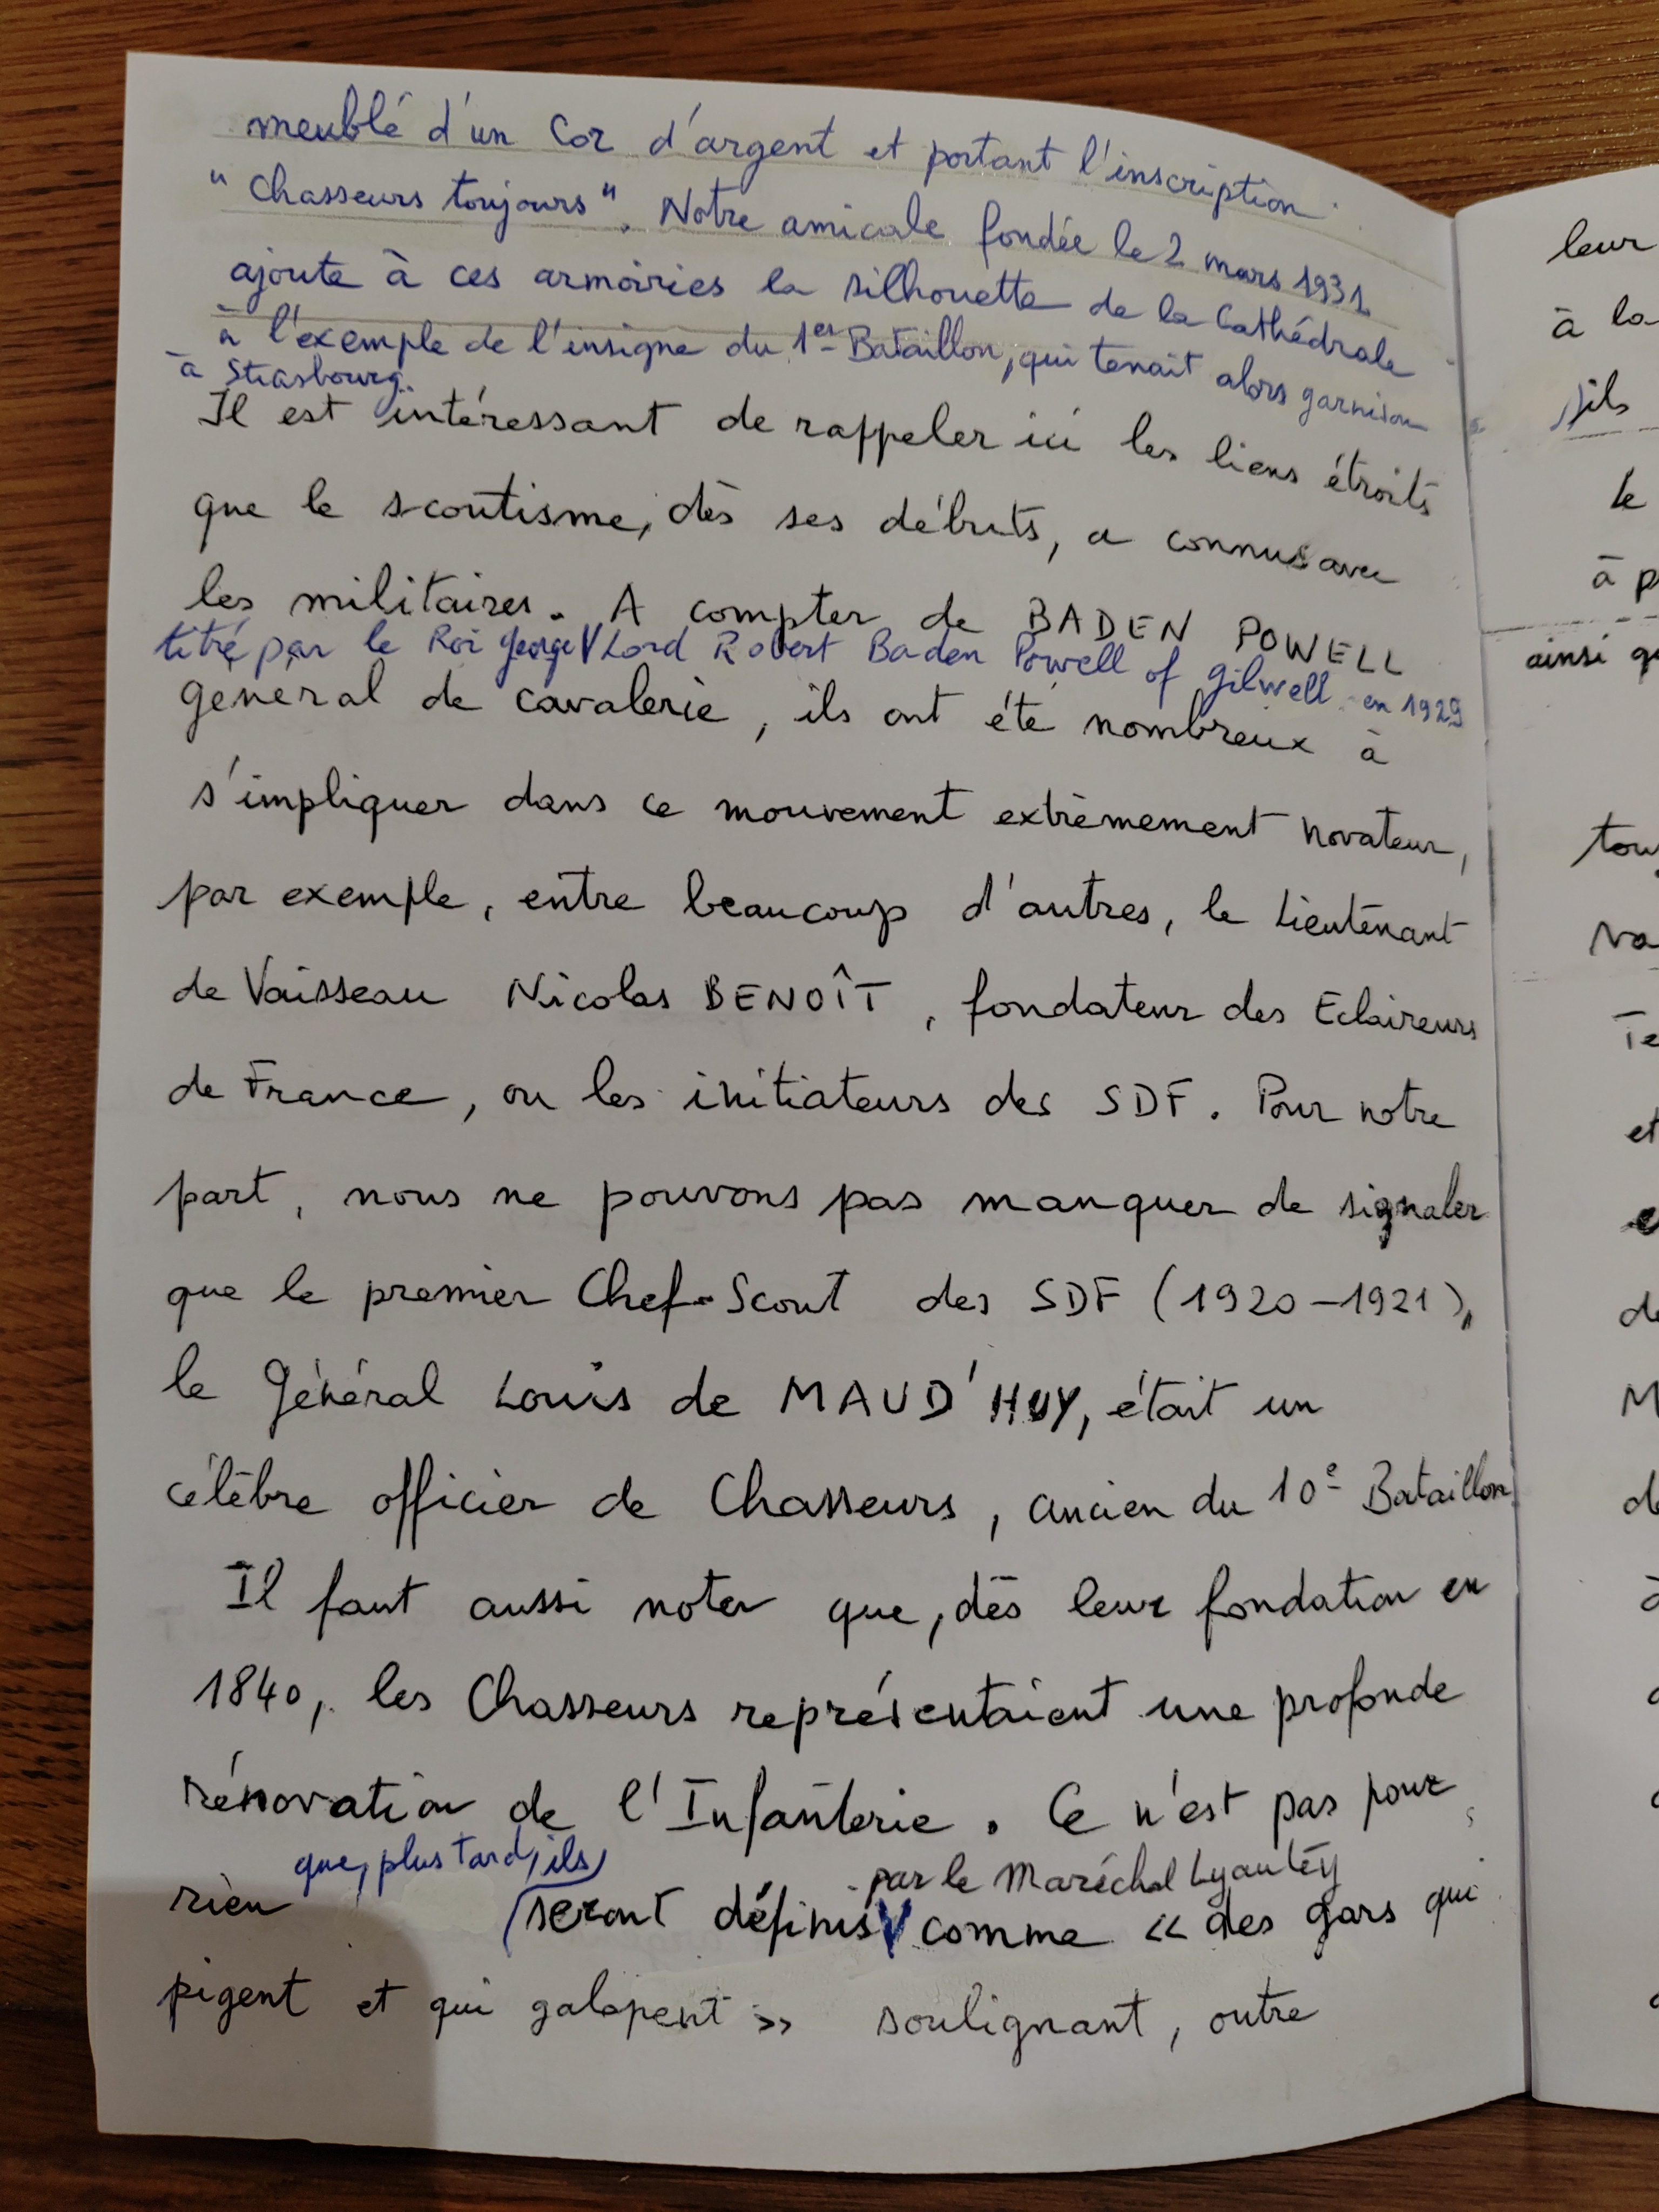 meublé d'un Cor d'argent et portant l'inscription
"Chasseurs toujours". Notre amicale fondée le 2 mars 1931
ajoute à ces armoiries la silhouette de la Cathédrale
à l'exemple de l'insigne du 1er Bataillon, qui tenait alors garnison
à Strasbourg.
Il est intéressant de rappeler ici les liens étroits
que le scoutisme, dès ses débuts, a connus avec
les militaires. A compter de BADEN POWELL
titré par le Roi George V Lord Robert Baden Powell of Gilwell en 1929
général de cavalerie, ils ont été nombreux à
s'impliquer dans ce mouvement extrèmement novateur,
par exemple, entre beaucoup d'autres, le Lieutenant
de Vaisseau Nicolas BENOÎT, fondateur des Eclaireurs
de France, ou les initiateurs des SDF. Pour notre
part, nous ne pouvons pas manquer de signaler
que le premier Chef-Scout des SDF (1920-1921),
le Général Louis de MAUD'HUY, était un
célèbre officier de Chasseurs, ancien du 10e Bataillon
Il faut aussi noter que, dès leur fondation en
1840, les Chasseurs représentaient une profonde
rénovation de l'Infanterie. Ce n'est pas pour
que, plus tard, ils par le Maréchal Lyautey
rien seront définis comme « des gars qui
pigent et qui galopent » soulignant, outre
leur
à la
ils
le
à p
ainsi q
tou
Te
et
de
M
de